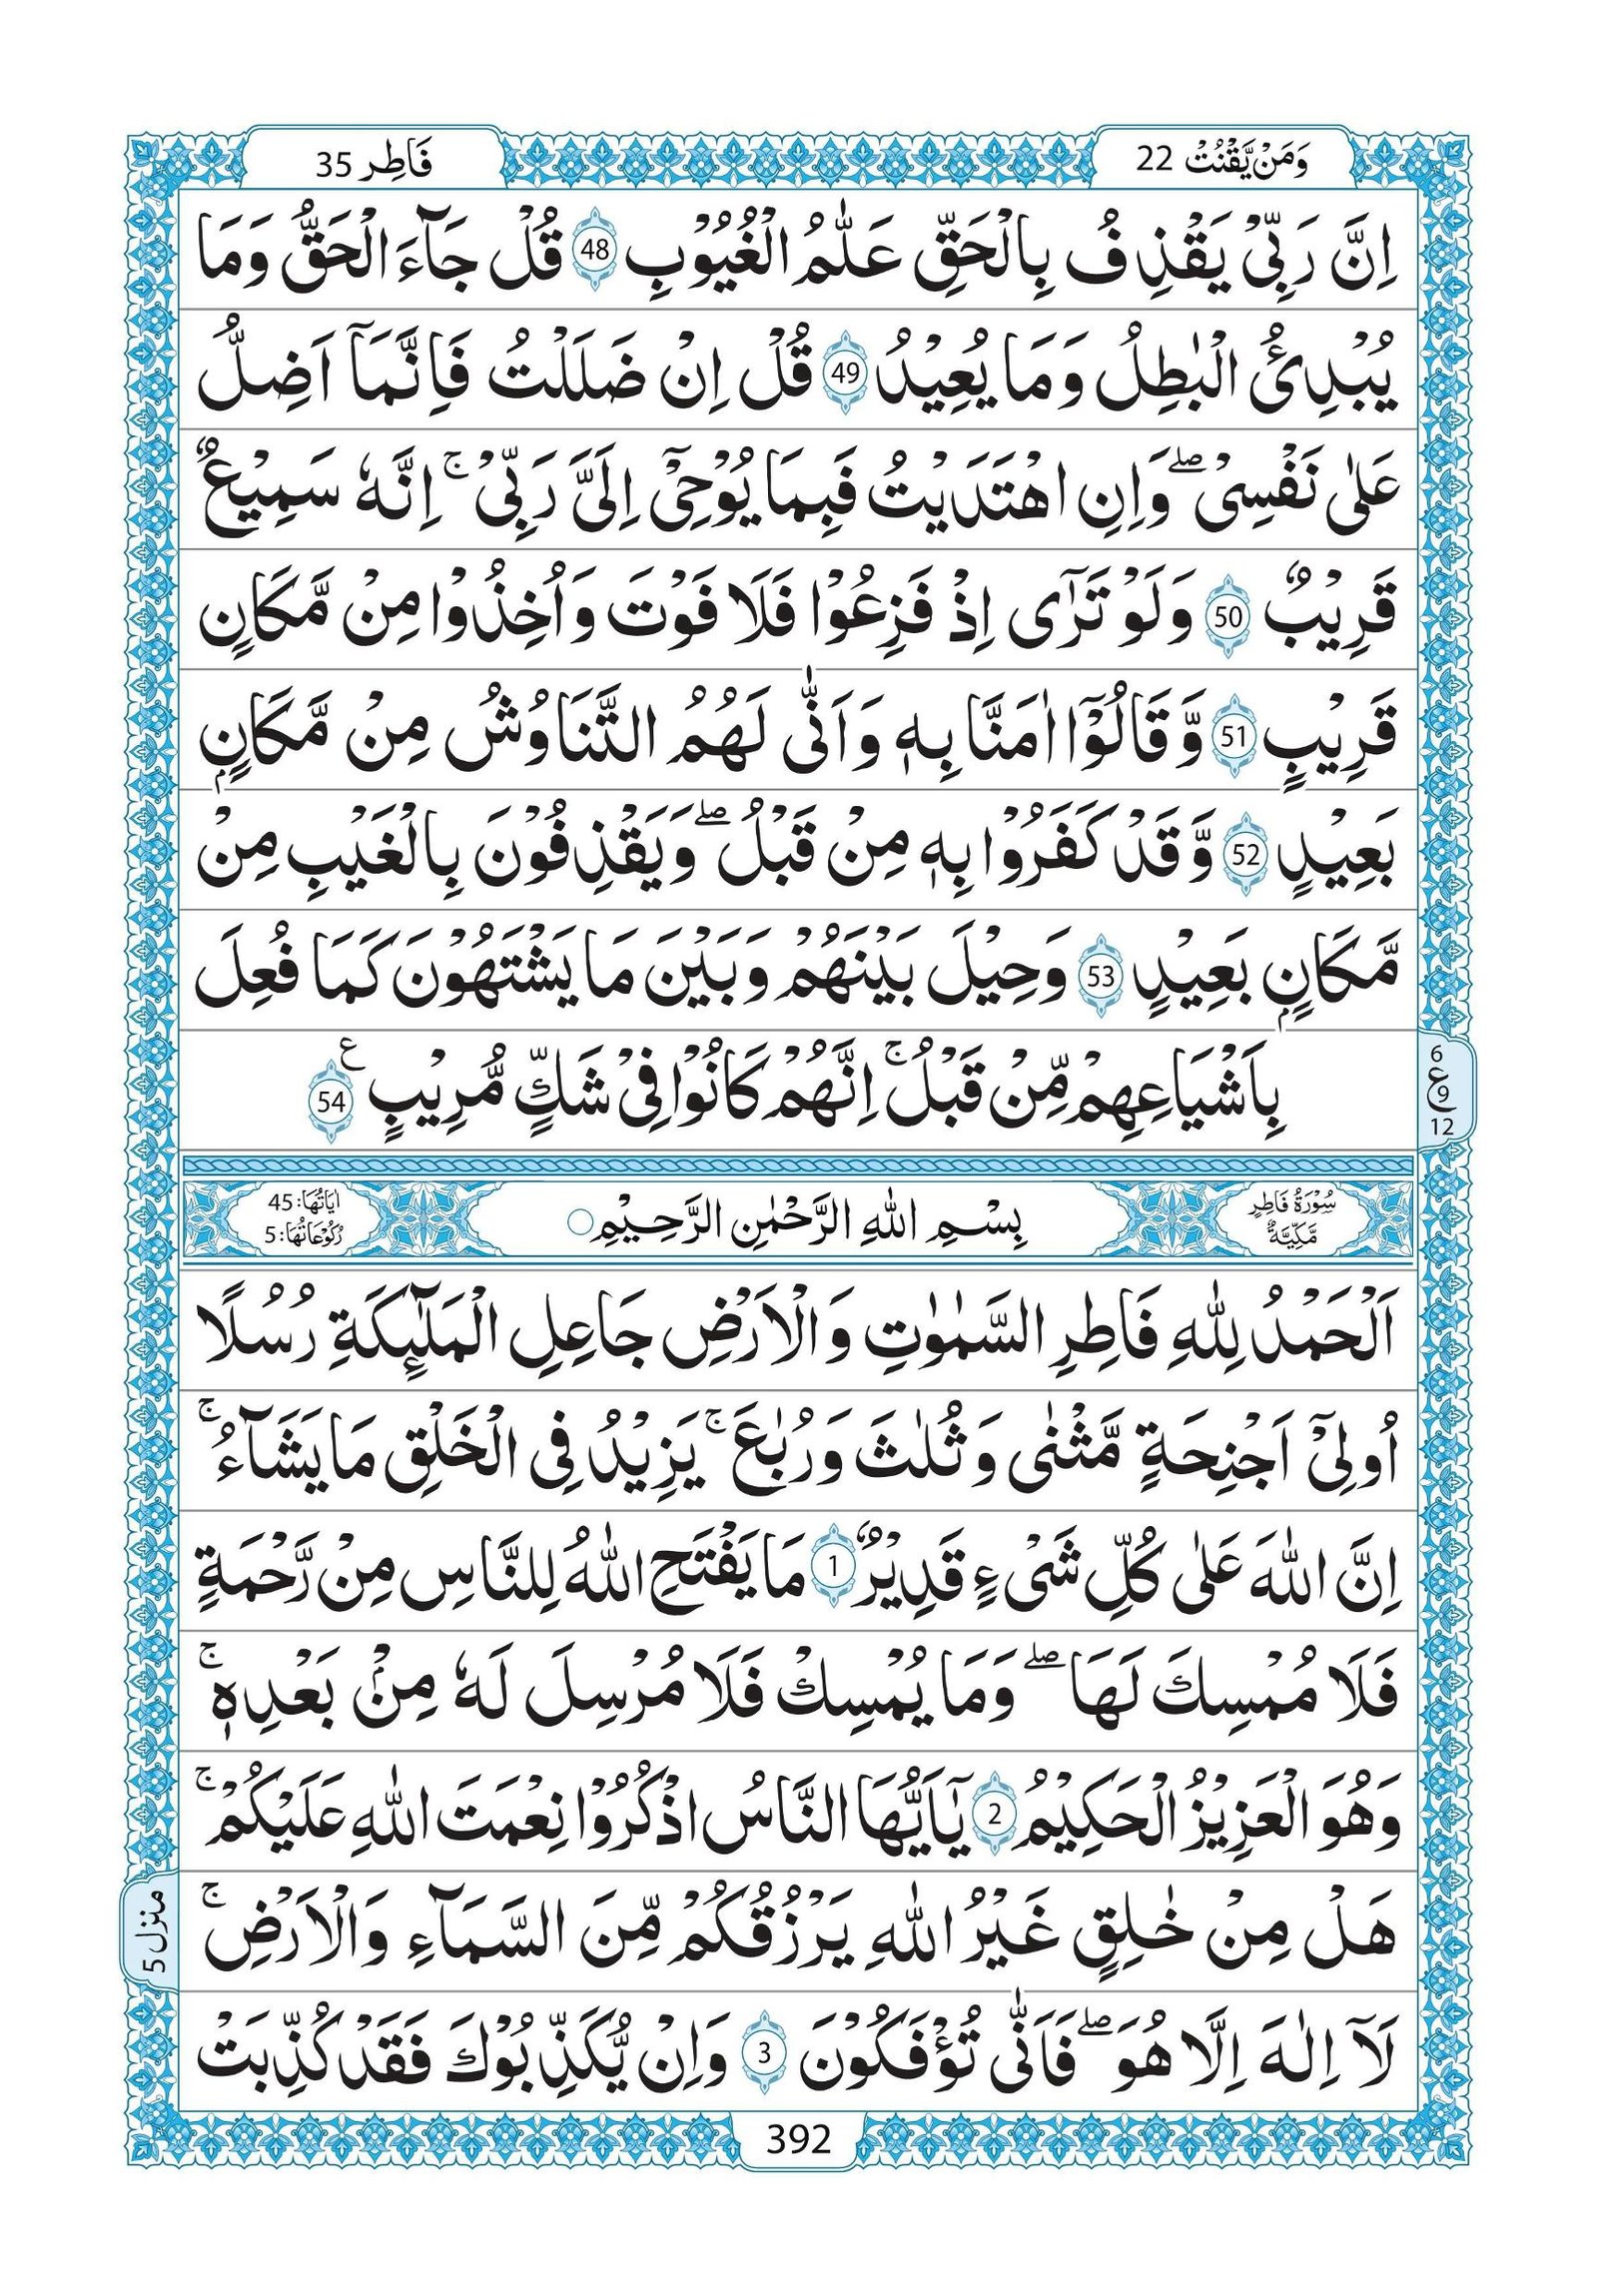 وَمَنْ يَّقْنُتْ 22
فَاطِر 35
اِنَّ رَبِّىْ يَقْذِفُ بِالْحَقِّ عَلَّامُ الْغُيُوْبِ 48 قُلْ جَآءَ الْحَقُّ وَمَا
يُبْدِئُ الْبٰطِلُ وَمَا يُعِيْدُ 49 قُلْ اِنْ ضَلَلْتُ فَاِنَّمَآ اَضِلُّ
عَلٰى نَفْسِىْ ۖ وَاِنِ اهْتَدَيْتُ فَبِمَا يُوْحِىْٓ اِلَىَّ رَبِّىْ ۚ اِنَّهٗ سَمِيْعٌ
قَرِيْبٌ 50 وَلَوْ تَرٰٓى اِذْ فَزِعُوْا فَلَا فَوْتَ وَاُخِذُوْا مِنْ مَّكَانٍ
قَرِيْبٍ 51 وَّقَالُوْٓا اٰمَنَّا بِهٖ وَاَنّٰى لَهُمُ التَّنَاوُشُ مِنْ مَّكَانٍۭ
بَعِيْدٍ 52 وَّقَدْ كَفَرُوْا بِهٖ مِنْ قَبْلُ ۖ وَيَقْذِفُوْنَ بِالْغَيْبِ مِنْ
مَّكَانٍۭ بَعِيْدٍ 53 وَحِيْلَ بَيْنَهُمْ وَبَيْنَ مَا يَشْتَهُوْنَ كَمَا فُعِلَ
بِاَشْيَاعِهِمْ مِّنْ قَبْلُ ۚ اِنَّهُمْ كَانُوْا فِىْ شَكٍّ مُّرِيْبٍ ع 54
6
ع 9
12
سُوْرَةُ فَاطِرٍ
مَّكِّيَّةٌ
بِسْمِ اللهِ الرَّحْمٰنِ الرَّحِيْمِ
اٰيَاتُهَا: 45
رُكُوْعَاتُهَا: 5
اَلْحَمْدُ لِلّٰهِ فَاطِرِ السَّمٰوٰتِ وَالْاَرْضِ جَاعِلِ الْمَلٰٓئِكَةِ رُسُلًا
اُولِىْٓ اَجْنِحَةٍ مَّثْنٰى وَثُلٰثَ وَرُبٰعَ ۚ يَزِيْدُ فِى الْخَلْقِ مَا يَشَآءُ ۚ
اِنَّ اللّٰهَ عَلٰى كُلِّ شَىْءٍ قَدِيْرٌ 1 مَا يَفْتَحِ اللّٰهُ لِلنَّاسِ مِنْ رَّحْمَةٍ
فَلَا مُمْسِكَ لَهَا ۖ وَمَا يُمْسِكْ فَلَا مُرْسِلَ لَهٗ مِنْۢ بَعْدِهٖ ۚ
وَهُوَ الْعَزِيْزُ الْحَكِيْمُ 2 يٰٓاَيُّهَا النَّاسُ اذْكُرُوْا نِعْمَتَ اللّٰهِ عَلَيْكُمْ ۚ
هَلْ مِنْ خٰلِقٍ غَيْرُ اللّٰهِ يَرْزُقُكُمْ مِّنَ السَّمَآءِ وَالْاَرْضِ ۚ
لَآ اِلٰهَ اِلَّا هُوَ ۖ فَاَنّٰى تُؤْفَكُوْنَ 3 وَاِنْ يُّكَذِّبُوْكَ فَقَدْ كُذِّبَتْ
منزل 5
392